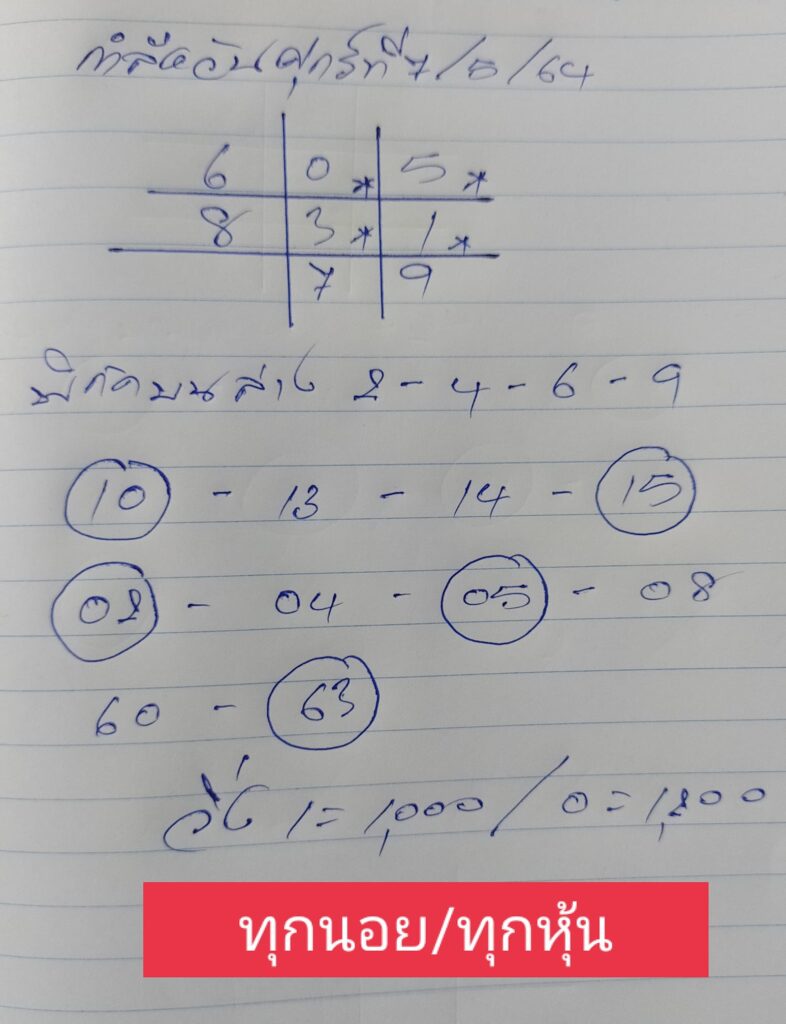 กำลังวันศุกร์ที่ 7/5/64
6 0* 5*
8 3* 1*
7 9
พิกัดบนล่าง 2-4-6-9
10 - 13 - 14 - 15
02 - 04 - 05 - 08
60 - 63
วิ่ง 1=1,000 / 0=1,200
ทุกนอย/ทุกหุ้น